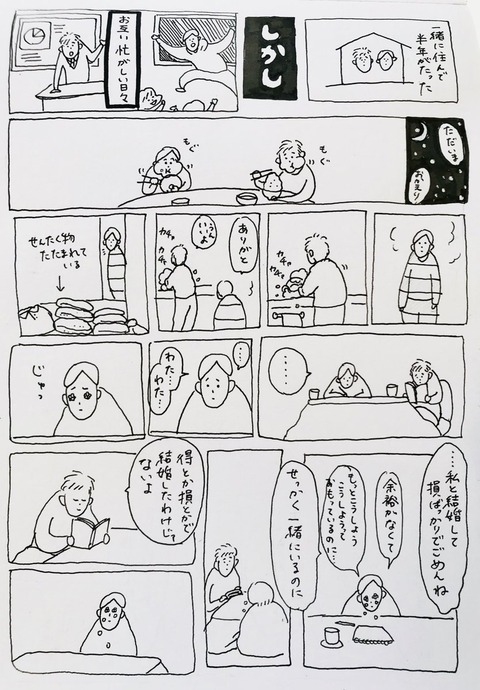 一緒に住んで
半年がたった
しかし
お互い忙しい日々
ただいま
おかえり
もぐ
もぐ
カチャ
カチャ
ありがと
うん
いいよ
カチャ
カチャ
せんたく物
たたまれて
いる
↓
・・・
・・・
わた…
わた…
じゅっ
……私と結婚して
損ばっかりでごめんね
余裕がなくて
もっとこうしよう
こうしようって
おもっているのに…
せっかく一緒にいるのに
得とか損とかで
結婚したわけじゃ
ないよ